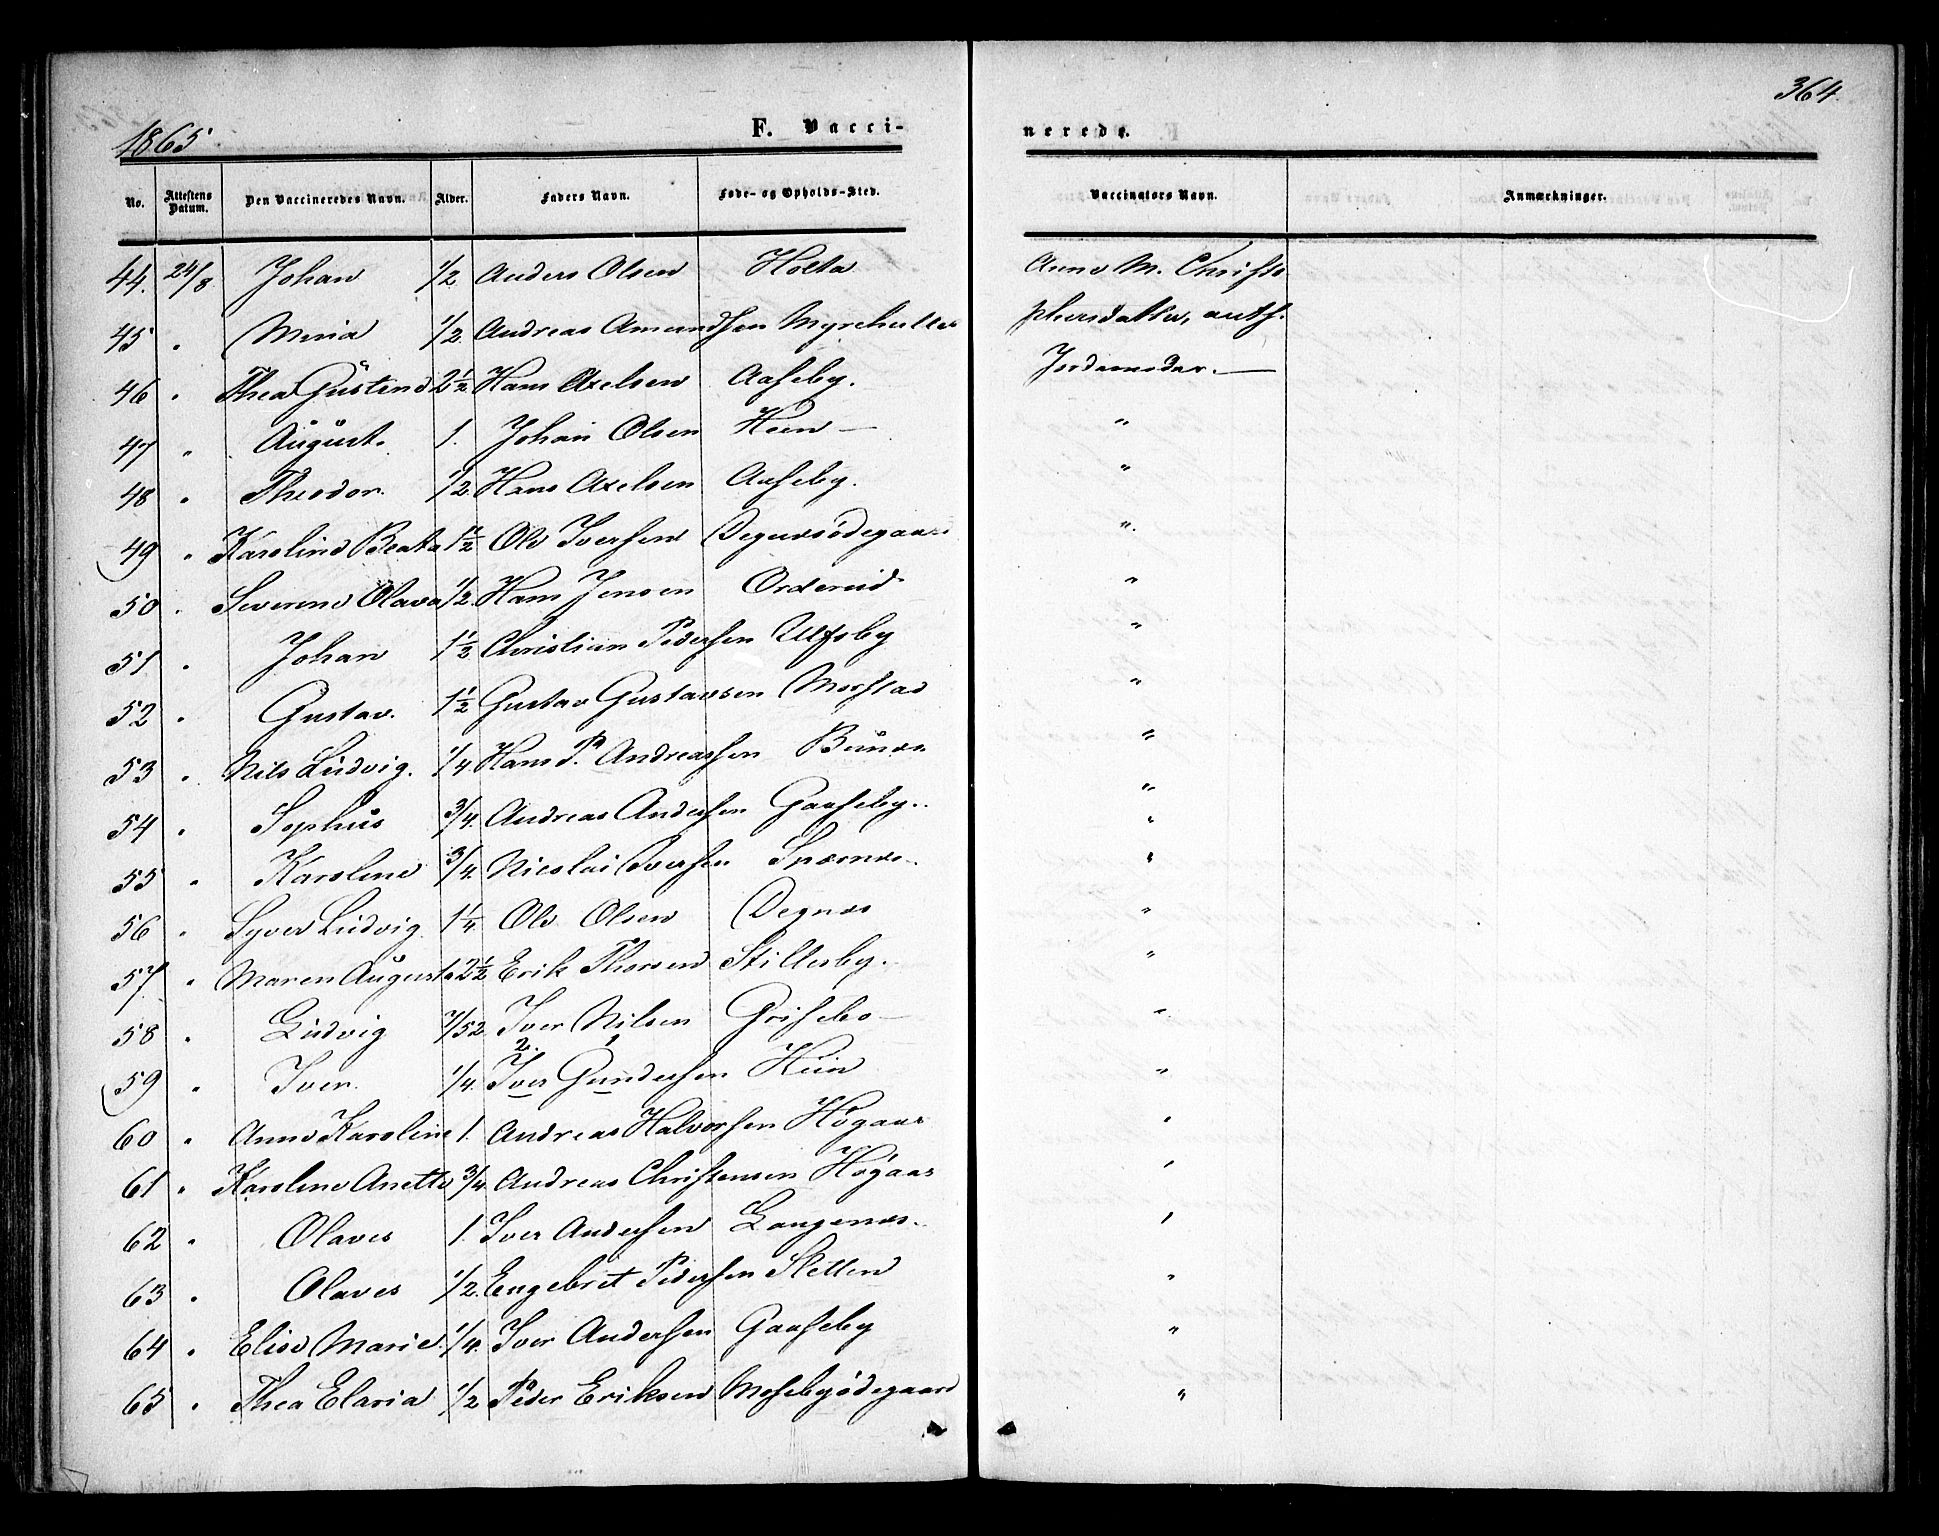 364.
1865. F. Vacci- nerede.
No. Attestens Datum. Den Vaccineredes Navn. Alder. Faders Navn. Føde- og Opholds-Sted. Vaccinators Navn. Anmærkninger.
44. 24/8 Johan 1/2 Anders Olsen Holta Anne M. Christo
45 " Maria 1/2 Andreas Amundsen phersdatter, auth.
46 " Thea Gustend 2 1/2 Hans Axelsen Aaseby. Jordemoder. —
47 " August. 1. Johan Olsen Heen — "
48 " Theodor. 1/2 Hans Axelsen Aaseby. "
49 " Karoline Beata 1 1/2 Ole Iversen Degnesødegaard "
50 " Severene Olava 1/2 Hans Jensen "
51 " Johan 1 1/2 Christian Pedersen Ulfsby "
52 " Gustav. 1 1/2 Gustav Gustavsen Morstad "
53 " Nils Ludvig. 1/4 Hans P. Andreassen Bunæs "
54 " Sophus 3/4. Andreas Andersen Gaaseby. "
55 " Karoline 3/4. Nicolai Iversen "
56 " Syver Ludvig 1 1/4 Ole Olsen Degnæs "
57 " Maren Augusta 2 1/2 Erik Thorsen Stillesby. "
58 " Ludvig 7/52. Iver Nilsen Grisebo — "
59 " Iver. 1/4. Iver Gundersen Hein "
60 " Anne Karoline 1. Andreas Halvorsen Høgaas "
61 " Karoline Anette 3/4. Andreas Christensen Høgaas "
62 " Olaves 1. Iver Andersen Langenæs. "
63 " Olaves 1/2. Engebret Pedersen Sletten "
64 " Elise Marie. 1/4. Iver Andersen Gaaseby "
65 " Thea Elaria 1/2 Peder Eriksen Mosebyødegaard "